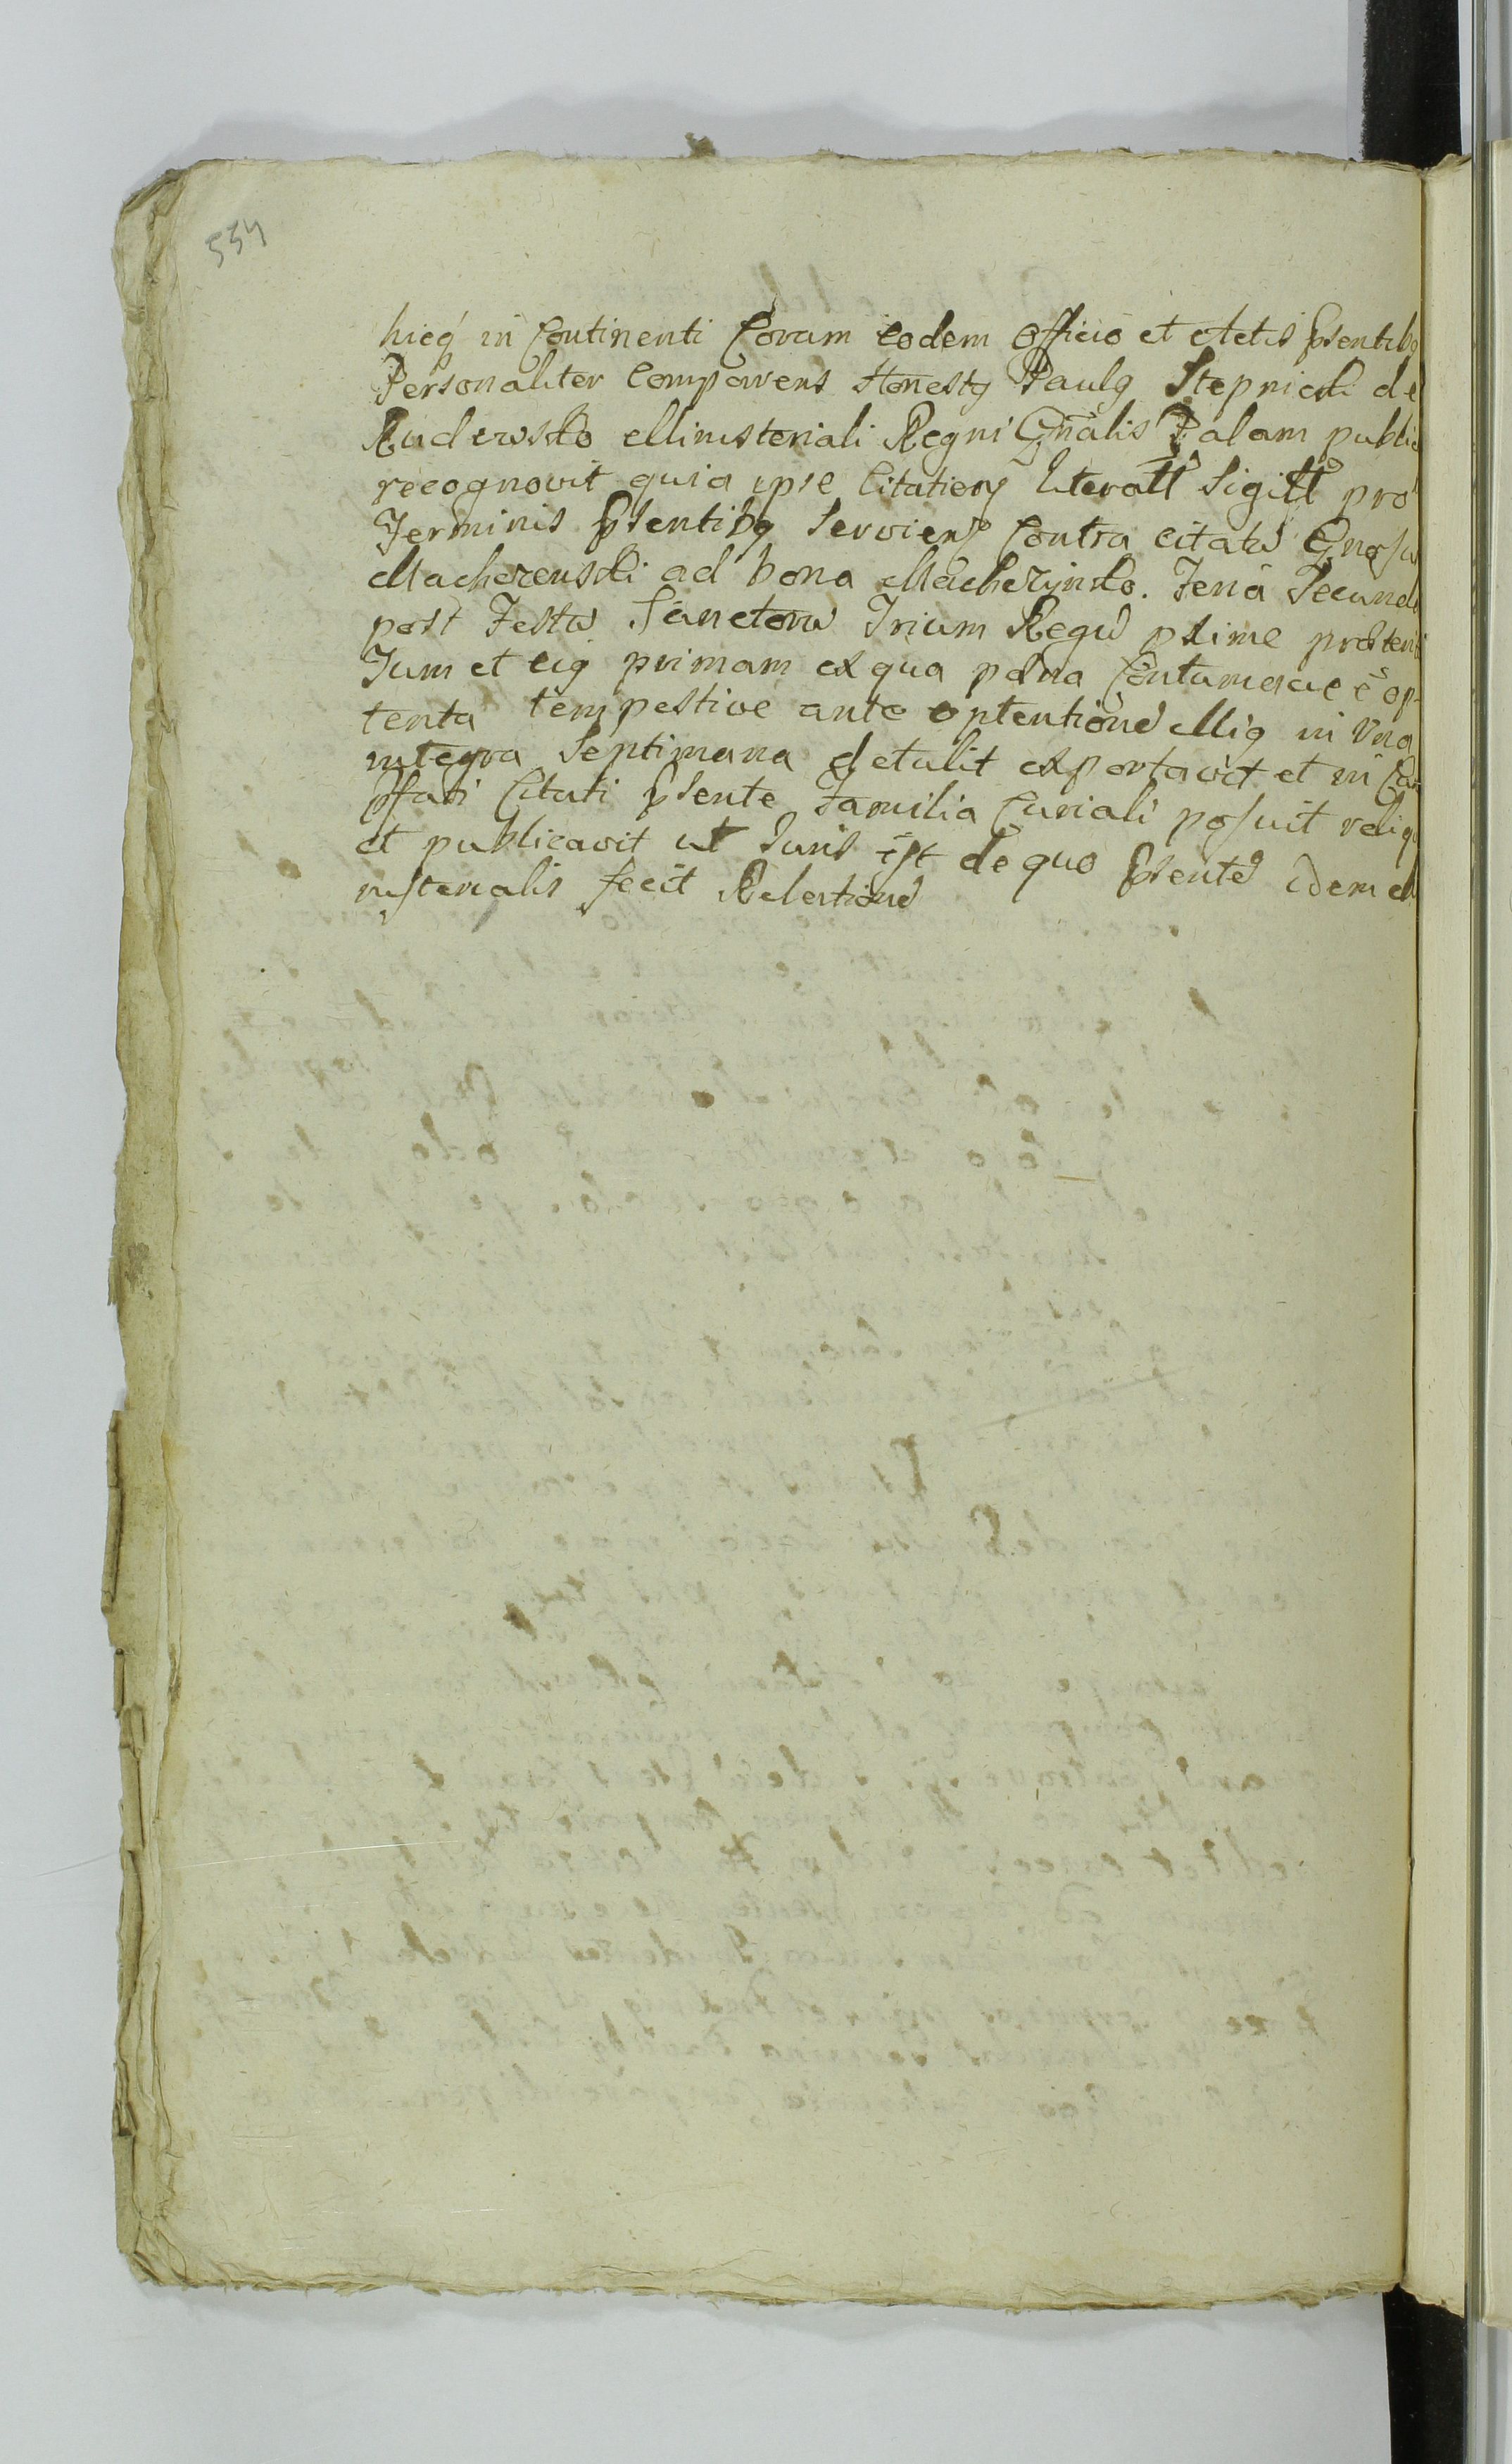 554
hicq in Continenti Coram eodem Officio et Actis psentib
Personaliter Comparens Honestq Paulq Stepnicki de
Rudewsko Ministeriali Regni Gnalis Palam public
recognovit quia ipse Citationq literatt Sigitt pro
Terminis psentibq Servienq Contra citatu Gnosu
Macherenski ad bona Macherzynsko. Feria Secund
post Festu Sanctoru Trium Regu pxime preterit
Tum et eiq primam ex qua pena Contumacie e op-
tenta tempestive ante optentione Miq in Una
integra Septimana detulit exportavit et in Cur
pfati Citati psente Familia Curiali posuit reliq
et publicavit ut Juris est de quo psente idem M
nisterialis fecit Relatione